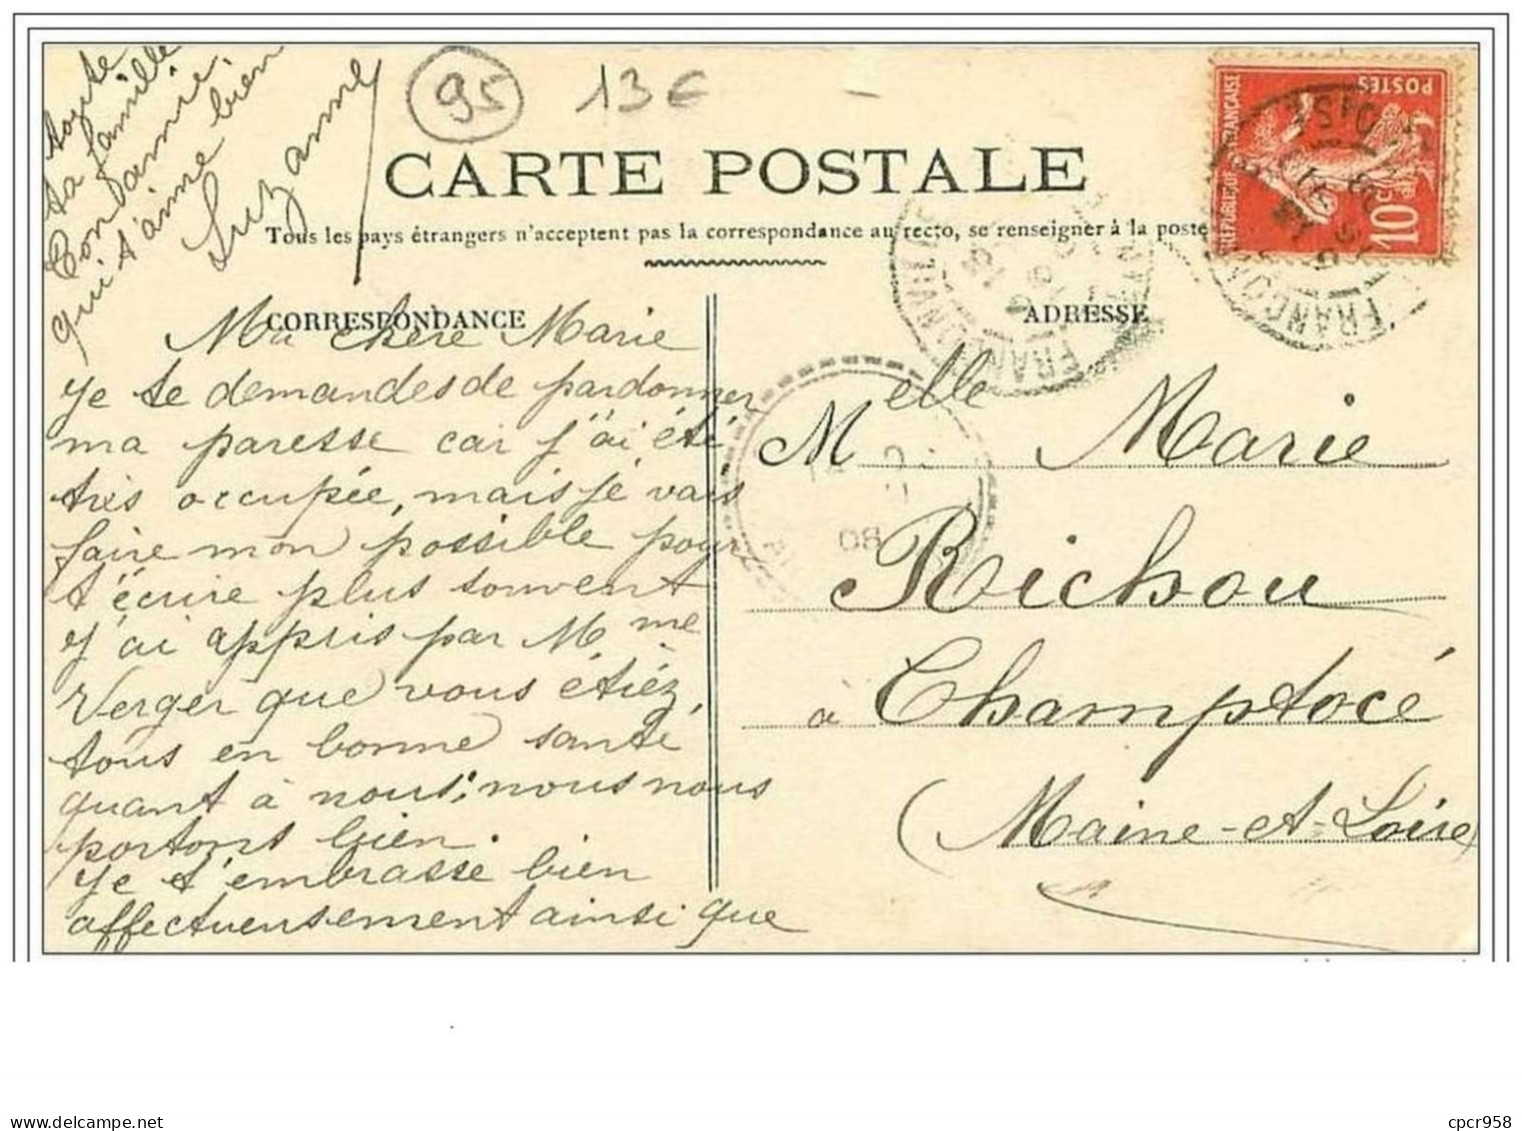 95 13€
CARTE POSTALE
Tous les pays étrangers n'acceptent pas la correspondance au recto, se renseigner à la poste
CORRESPONDANCE
Ma chère Marie
Je te demandes de pardonner
ma paresse car j'ai été
très occupée, mais je vais
faire mon possible pour
t'écrire plus souvent
J'ai appris par Mme
Verger que vous étiez
tous en bonne santé
quant à nous, nous nous
portons bien.
Je t'embrasse bien
affectueusement ainsi que
toute
ta famille
Ton amie
qui t'aime bien
Suzanne
ADRESSE
Melle Marie
Richou
a Champtocé
(Maine-et-Loire)
REPUBLIQUE FRANÇAISE
POSTES
10c
FRANCONVILLE
FRANCONV
OISE
08
cpcr958